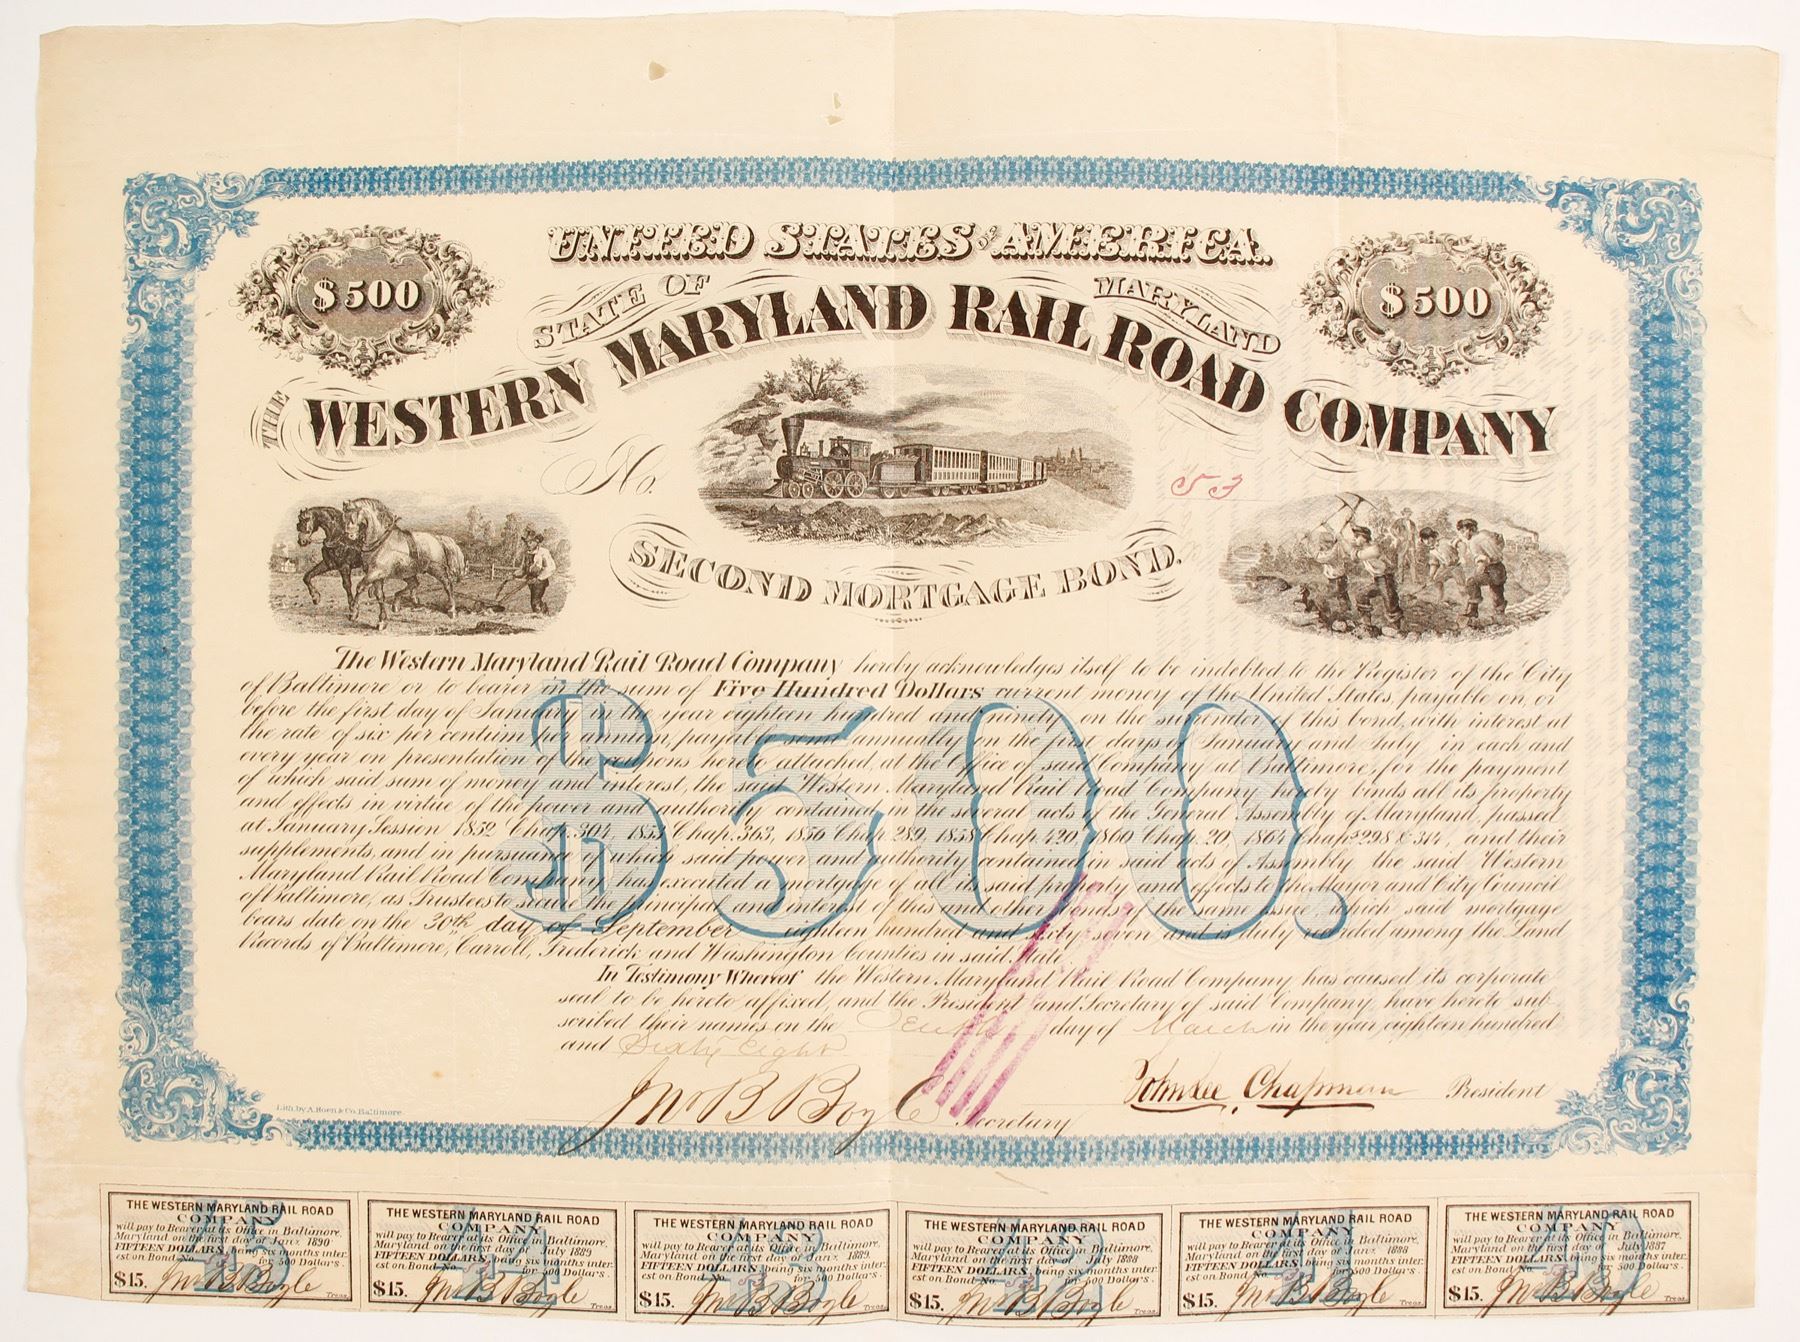 UNITED STATES OF AMERICA.
STATE OF MARYLAND
$500
$500
THE WESTERN MARYLAND RAIL ROAD COMPANY
No. 53
SECOND MORTGAGE BOND.
The Western Maryland Rail Road Company hereby acknowledges itself to be indebted to the Register of the City
of Baltimore or to bearer in the sum of Five Hundred Dollars current money of the United States, payable on, or
before the first day of January in the year eighteen hundred and ninety on the surrender of this bond, with interest at
the rate of six per centum per annum, payable semi annually on the first days of January and July, in each and
every year on presentation of the coupons hereto attached, at the Office of said Company at Baltimore, for the payment
of which said sum of money and interest, the said Western Maryland Rail Road Company hereby binds all its property
and effects in virtue of the power and authority contained in the several acts of the General Assembly of Maryland, passed
at January Session 1852 Chap. 304, 1853 Chap. 363, 1856 Chap. 289, 1858 Chap. 420, 1860 Chap. 20, 1864 Chaps 298 & 314, and their
supplements, and in pursuance of which said power and authority contained in said acts of Assembly the said Western
Maryland Rail Road Company has executed a mortgage of all its said property and effects to the Mayor and City Council
of Baltimore, as Trustees to secure the principal and interest of this and other bonds of the same issue, which said mortgage
bears date on the 30th day of September eighteen hundred and sixty seven and is duly recorded among the Land
Records of Baltimore, Carroll, Frederick and Washington Counties in said State.
$500.
In Testimony Whereof the Western Maryland Rail Road Company has caused its corporate
seal to be hereto affixed, and the President and Secretary of said Company, have hereto sub-
scribed their names on the Tenth day of March in the year eighteen hundred
and Sixty Eight
Jno B Boyle Secretary
John Lee Chapman President
Lith. by A. Hoen & Co. Baltimore
THE WESTERN MARYLAND RAIL ROAD
COMPANY
will pay to Bearer at its Office in Baltimore,
Maryland on the first day of Jany. 1890
FIFTEEN DOLLARS, being six months inter-
est on Bond No. for 500 Dollars.
$15. Jno B Boyle Treas.
THE WESTERN MARYLAND RAIL ROAD
COMPANY
will pay to Bearer at its Office in Baltimore,
Maryland on the first day of July 1889
FIFTEEN DOLLARS, being six months inter-
est on Bond No. for 500 Dollars.
$15. Jno B Boyle Treas.
THE WESTERN MARYLAND RAIL ROAD
COMPANY
will pay to Bearer at its Office in Baltimore,
Maryland on the first day of Jany. 1889.
FIFTEEN DOLLARS, being six months inter-
est on Bond No. for 500 Dollars.
$15. Jno B Boyle Treas.
THE WESTERN MARYLAND RAIL ROAD
COMPANY
will pay to Bearer at its Office in Baltimore,
Maryland on the first day of July 1888
FIFTEEN DOLLARS, being six months inter-
est on Bond No. for 500 Dollars.
$15. Jno B Boyle Treas.
THE WESTERN MARYLAND RAIL ROAD
COMPANY
will pay to Bearer at its Office in Baltimore,
Maryland on the first day of Jany. 1888
FIFTEEN DOLLARS, being six months inter-
est on Bond No. for 500 Dollars.
$15. Jno B Boyle Treas.
THE WESTERN MARYLAND RAIL ROAD
COMPANY
will pay to Bearer at its Office in Baltimore,
Maryland on the first day of July 1887
FIFTEEN DOLLARS, being six months inter-
est on Bond No. for 500 Dollars.
$15. Jno B Boyle Treas.